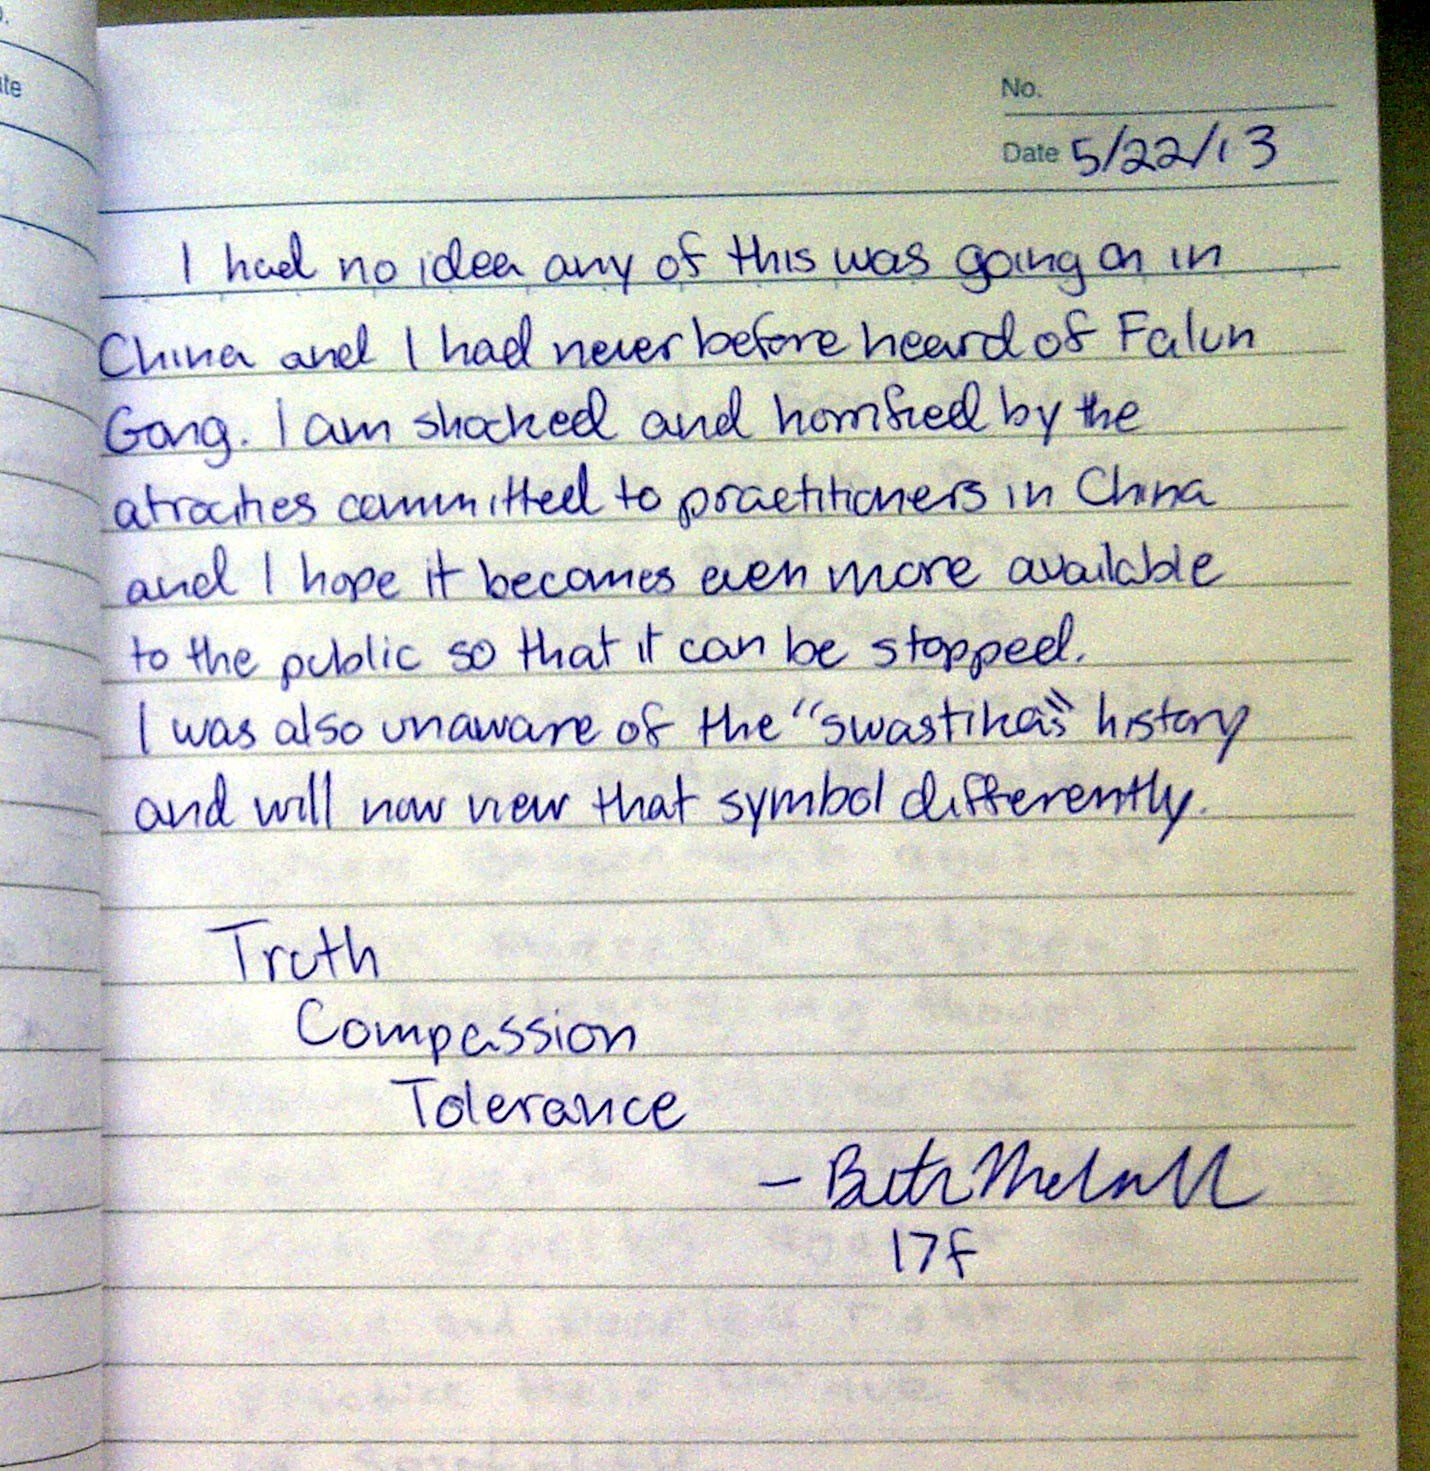 te
No.
Date 5/22/13
I had no idea any of this was going on in
China and I had never before heard of Falun
Gong. I am shocked and horrified by the
atrocities committed to practitioners in China
and I hope it becomes even more available
to the public so that it can be stopped.
I was also unaware of the "swastika's" history
and will now view that symbol differently.
Truth
Compassion
Tolerance
- Beth
17f